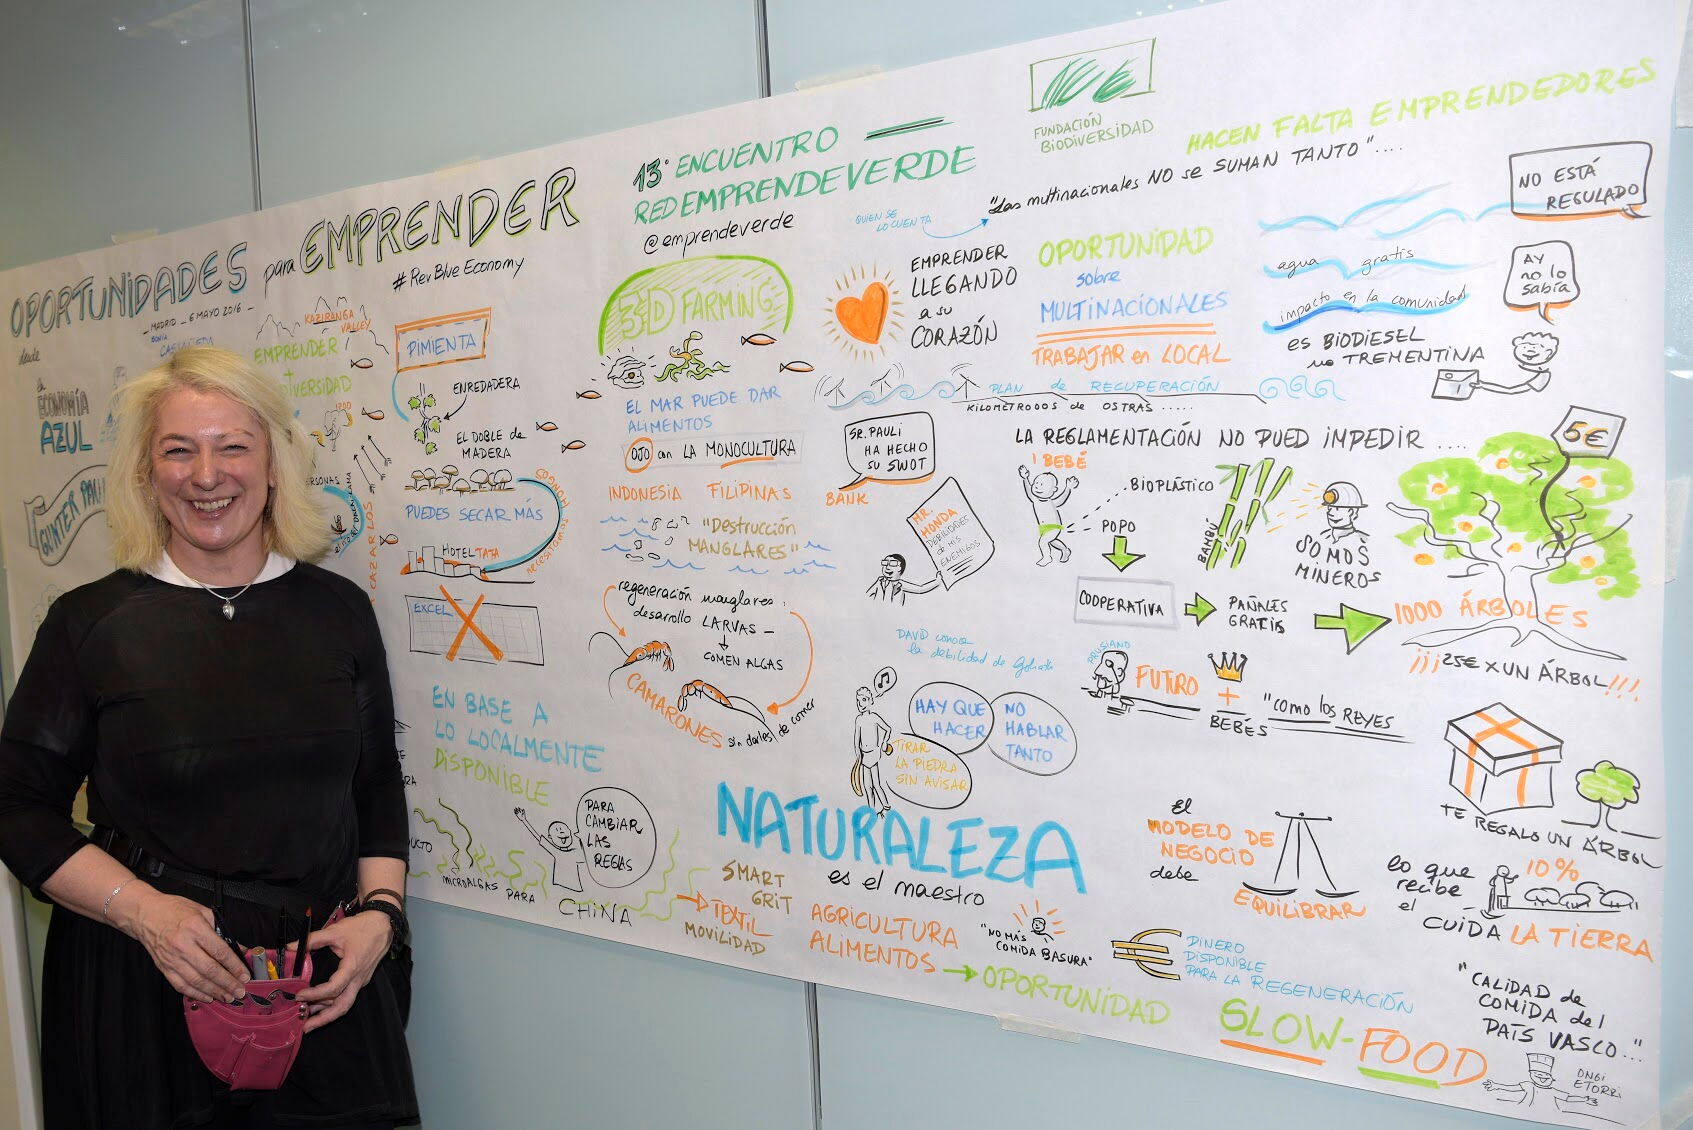 OPORTUNIDADES
para EMPRENDER
# RevBlueEconomy
MADRID _ 6 MAYO 2016 _
desde
la
ECONOMÍA
AZUL
GUNTER PAULI
KAZIRANGA
VALLEY
EMPRENDER
+
1200
PIMIENTA
ENREDADERA
EL DOBLE de
MADERA
PUEDES SECAR MÁS
HOTEL TATA
EXCEL
EN BASE A
LO LOCALMENTE
DISPONIBLE
MICROALGAS PARA
CHINA
PARA
CAMBIAR
LAS
REGLAS
13º ENCUENTRO
RED EMPRENDEVERDE
@emprendeverde
3D FARMING
EL MAR PUEDE DAR
ALIMENTOS
OJO con LA MONOCULTURA
INDONESIA FILIPINAS
"DESTRUCCIÓN
MANGLARES"
regeneración manglares:
desarrollo LARVAS
COMEN ALGAS
CAMARONES
sin darles de comer
SMART
GRIT
TEXTIL
MOVILIDAD
FUNDACIÓN
BIODIVERSIDAD
HACEN FALTA EMPRENDEDORES
"Las multinacionales NO se SUMAN TANTO"....
QUIEN SE
LO CUENTA
EMPRENDER
LLEGANDO
a su
CORAZÓN
OPORTUNIDAD
sobre
MULTINACIONALES
TRABAJAR en LOCAL
agua gratis
impacto en la comunidad
es BIODIESEL
no TREMENTINA
NO ESTÁ
REGULADO
AY
no lo
sabía
PLAN de RECUPERACIÓN
KILOMETROOOS de OSTRAS.....
SR. PAULI
HA HECHO
SU SWOT
BANK
MR.
HONDA
DEBILIDADES
de MIS
ENEMIGOS
LA REGLAMENTACIÓN NO PUED IMPEDIR....
1 BEBÉ
BIOPLÁSTICO
POPO
BAMBÚ
SOMOS
MINEROS
5€
COOPERATIVA
PAÑALES
GRATIS
1000 ÁRBOLES
¡¡¡25€ X UN ÁRBOL!!!
DAVID conoce
la debilidad de Goliath
HAY QUE
HACER
NO
HABLAR
TANTO
TIRAR
LA PIEDRA
SIN AVISAR
PRUSIANO
FUTURO
+
BEBÉS
"como los REYES
NATURALEZA
es el maestro
AGRICULTURA
ALIMENTOS
OPORTUNIDAD
"NO MÁS
COMIDA BASURA"
El
MODELO DE
NEGOCIO
debe
EQUILIBRAR
TE REGALO UN ÁRBOL
lo que
recibe
el
10%
CUIDA LA TIERRA
€
DINERO
DISPONIBLE
PARA LA REGENERACIÓN
SLOW-FOOD
"CALIDAD de
COMIDA del
PAÍS VASCO..."
ONGI
ETORRI